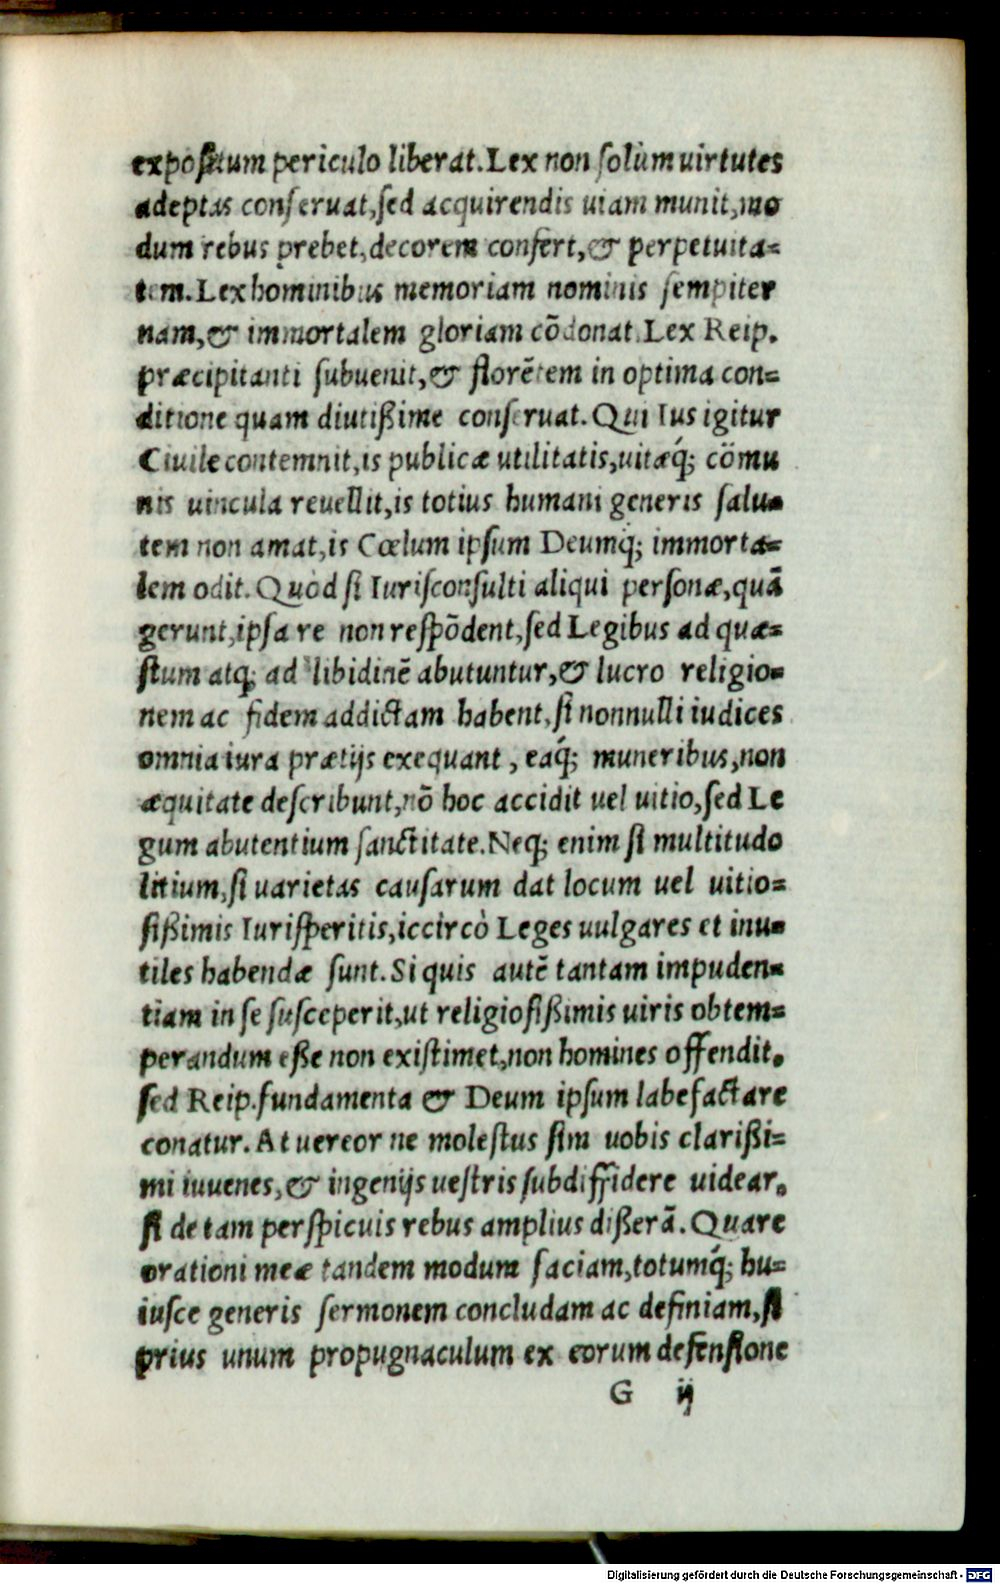 expositum periculo liberat. Lex non solùm uirtutes
adeptas conseruat, sed acquirendis uiam munit, mo
dum rebus prebet, decorem confert, & perpetuita=
tem. Lex hominibus memoriam nominis sempiter
nam, & immortalem gloriam cōdonat. Lex Reip.
præcipitanti subuenit, & florētem in optima con=
ditione quam diutißime conseruat. Qui Ius igitur
Ciuile contemnit, is publicæ utilitatis, uitæq́; cōmu
nis uincula reuellit, is totius humani generis salu=
tem non amat, is Cœlum ipsum Deumq́; immorta=
lem odit. Quòd si Iurisconsulti aliqui personæ, quā
gerunt, ipsa re non respōdent, sed Legibus ad quæ=
stum atq; ad libidinē abutuntur, & lucro religio=
nem ac fidem addictam habent, si nonnulli iudices
omnia iura prætijs exequant, eaq́; muneribus, non
æquitate describunt, nō hoc accidit uel uitio, sed Le
gum abutentium sanctitate. Neq; enim si multitudo
litium, si uarietas causarum dat locum uel uitio=
sißimis Iurisperitis, iccircò Leges uulgares et inu=
tiles habendæ sunt. Si quis autē tantam impuden=
tiam in se susceperit, ut religiosißimis uiris obtem=
perandum eße non existimet, non homines offendit,
sed Reip. fundamenta & Deum ipsum labefactare
conatur. At uereor ne molestus sim uobis clarißi=
mi iuuenes, & ingenijs uestris subdiffidere uidear,
si de tam perspicuis rebus amplius dißerā. Quare
orationi meæ tandem modum faciam, totumq́; hu=
iusce generis sermonem concludam ac definiam, si
prius unum propugnaculum ex eorum defensione
G ij
Digitalisierung gefördert durch die Deutsche Forschungsgemeinschaft - DFG